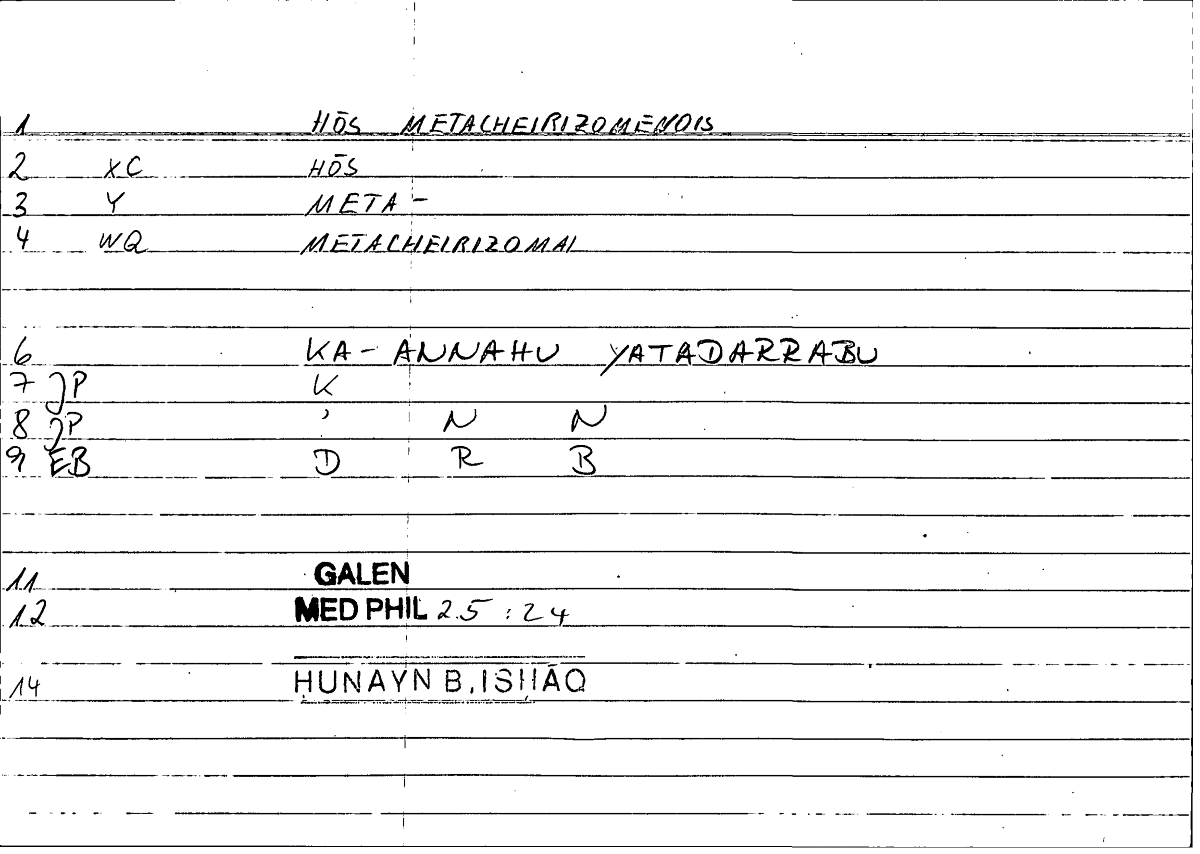 1 HŌS METACHEIRIZOMENOIS
2 XC HŌS
3 Y META-
4 WQ METACHEIRIZOMAI
6 KA-ANNAHU YATADARRABU
7 JP K
8 JP ʾ N N
9 EB D R B
11 GALEN
12 MED PHIL 25:24
14 HUNAYN B. ISḤĀQ